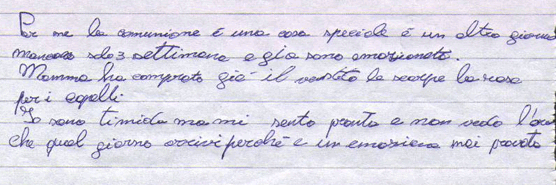 Per me la comunione è una cosa speciale è un altro giorno
mancano solo 3 settimana e gia sono emozionata.
Mamma ha comprato già il vestito le scarpe la rosa
per i capelli
Io sono timida ma mi sento pronta e non vedo l'ora
che quel giorno arrivi perché è un emozione mai provata